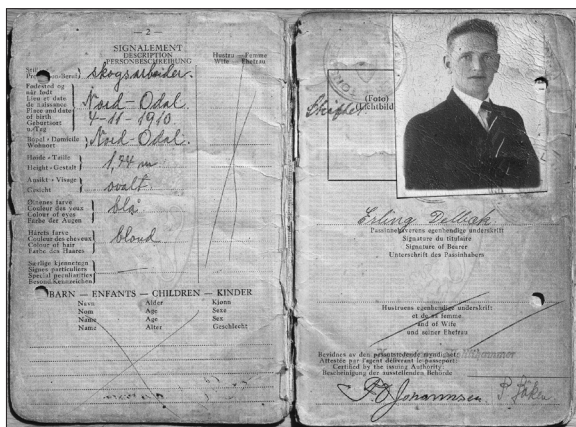 — 2 —
SIGNALEMENT
DESCRIPTION
PERSONBESCHREIBUNG
Hustru — Femme
Wife — Ehefrau
skogsarbeider.
Fødested og
når født
Lieu et date
de naissance
Place and date
of birth
Geburtsort
u. Tag
Nord-Odal
4-11-1910
Bopel - Domicile
Wohnort
Nord-Odal.
Høide - Taille
Height - Gestalt
1,74 m
Ansikt - Visage
Gesicht
ovalt
Øinenes farve
Couleur des yeux
Colour of eyes
Farbe der Augen
blå
Hårets farve
Couleur des cheveux
Colour of hair
Farbe des Haares
blond
Særlige kjennetegn
Signes particuliers
Special peculiarities
Besond. Kennzeichen
BARN — ENFANTS — CHILDREN — KINDER
Navn Alder Kjønn
Nom Age Sexe
Name Age Sex
Name Alter Geschlecht
(Foto)
(Lichtbild
Erling Delbæk
Passinnehaverens egenhendige underskrift
Signature du titulaire
Signature of Bearer
Unterschrift des Passinhabers
Hustruens egenhendige underskrift
et de sa femme
and of Wife
und seiner Ehefrau
Bevidnes av den passutstedende myndighet:
Attestée par l'agent délivrant le passeport:
Certified by the issuing Authority:
Bescheinigung der ausstellenden Behörde
Johannsen